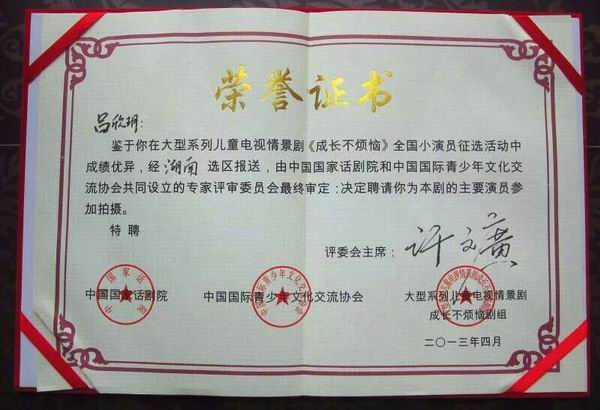 荣誉证书
吕欣玥:
鉴于你在大型系列儿童电视情景剧《成长不烦恼》全国小演员征选活动中
成绩优异，经 湖南 选区报送，由中国国家话剧院和中国国际青少年文化交
流协会共同设立的专家评审委员会最终审定：决定聘请你为本剧的主要演员参
加拍摄。
特 聘
评委会主席：许文广
中国国家话剧院
中国国际青少年文化交流协会
大型系列儿童电视情景剧
成长不烦恼剧组
二〇一三年四月